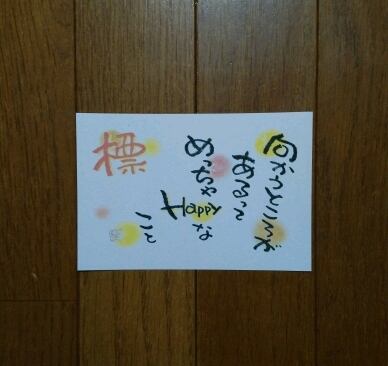 向かうところが
あるって
めっちゃHappyな
こと
標